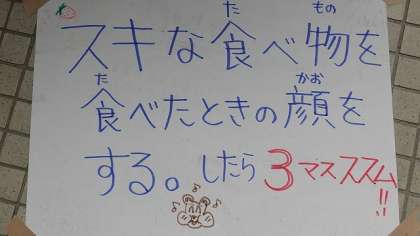 スキな食べ物を
食べたときの顔を
する。したら3マスススム!!